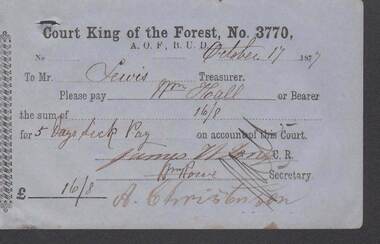 Court King of the Forest, No. 3770,
A. O. F., B. U. D.
No October 17 1877
To Mr. Lewis Treasurer.
Please pay Wm Hall or Bearer
the sum of 16/8
for 5 Days Sick Pay on account of this Court.
James W C. R.
Wm Howe Secretary
£ 16/8 A. Christenson